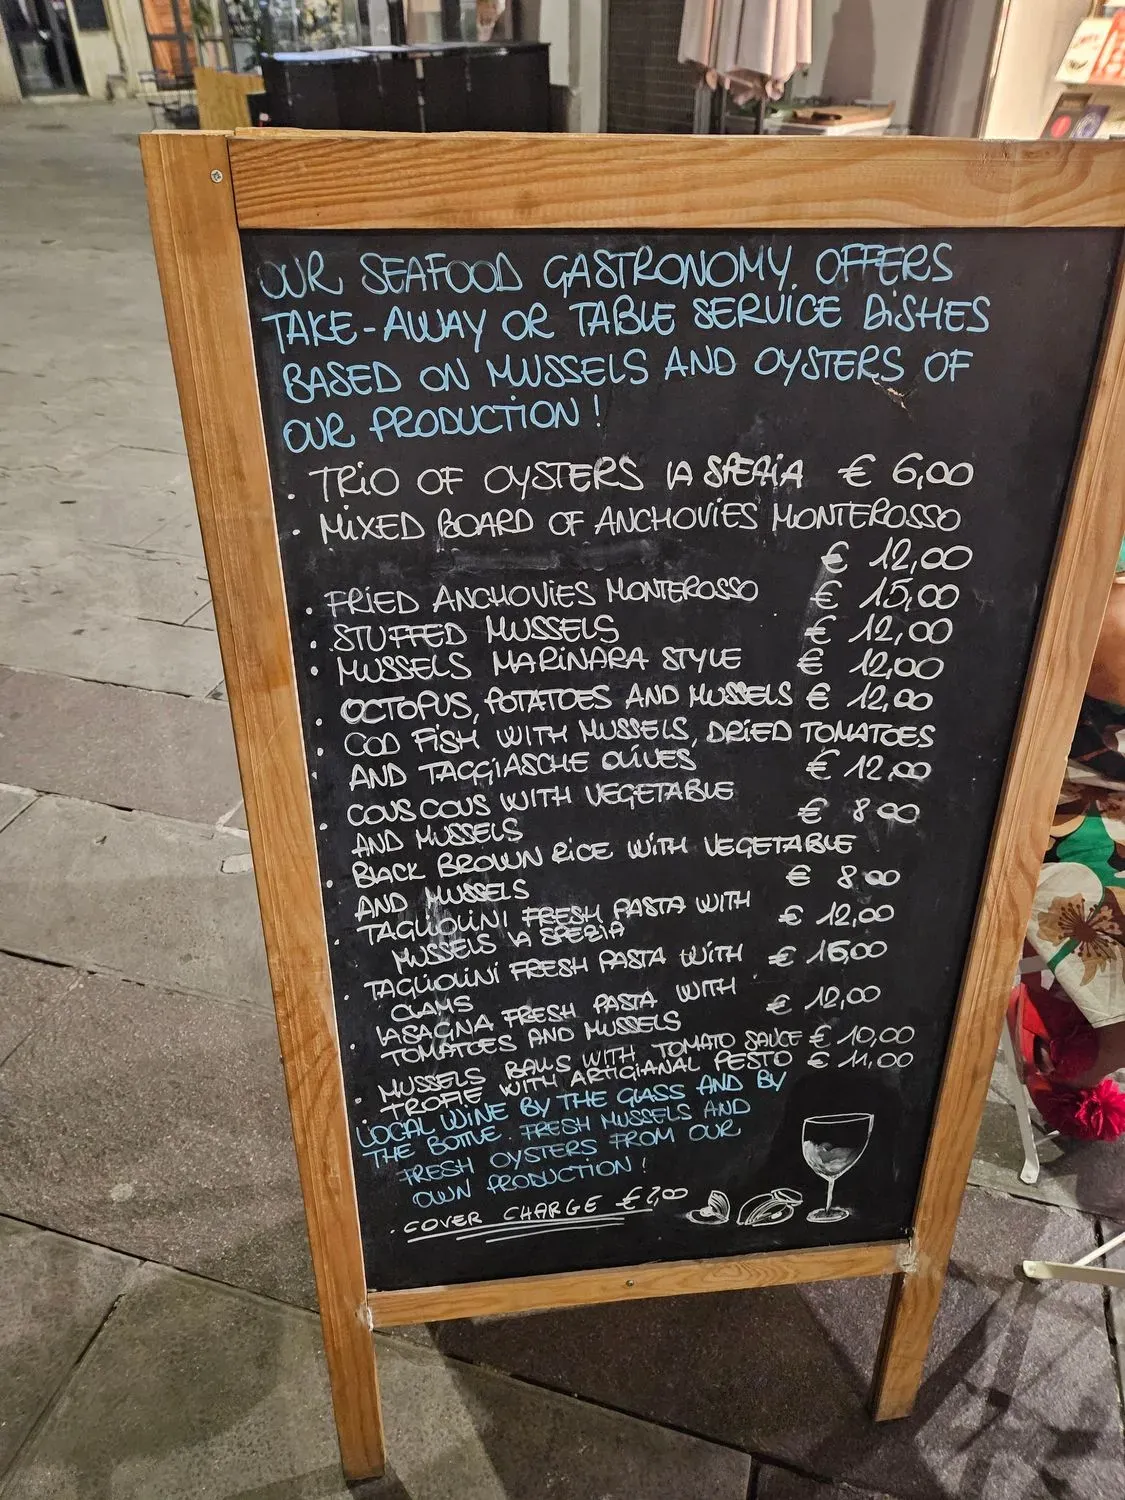 OUR SEAFOOD GASTRONOMY OFFERS
TAKE-AWAY OR TABLE SERVICE DISHES
BASED ON MUSSELS AND OYSTERS OF
OUR PRODUCTION!
· TRIO OF OYSTERS LA SPEZIA € 6,00
· MIXED BOARD OF ANCHOVIES MONTEROSSO
€ 12,00
· FRIED ANCHOVIES MONTEROSSO € 15,00
· STUFFED MUSSELS € 12,00
· MUSSELS MARINARA STYLE € 12,00
· OCTOPUS, POTATOES AND MUSSELS € 12,00
· COD FISH WITH MUSSELS, DRIED TOMATOES
AND TAGGIASCHE OLIVES € 12,00
· COUS COUS WITH VEGETABLE
AND MUSSELS € 8,00
· BLACK BROWN RICE WITH VEGETABLE
AND MUSSELS € 8,00
· TAGLIOLINI FRESH PASTA WITH € 12,00
MUSSELS LA SPEZIA
· TAGLIOLINI FRESH PASTA WITH € 16,00
CLAMS
· LASAGNA FRESH PASTA WITH € 12,00
TOMATOES AND MUSSELS
· MUSSELS BALLS WITH TOMATO SAUCE € 10,00
TROFIE WITH ARTIGIANAL PESTO € 11,00
LOCAL WINE BY THE GLASS AND BY
THE BOTTLE. FRESH MUSSELS AND
FRESH OYSTERS FROM OUR
OWN PRODUCTION!
· COVER CHARGE € 2,00